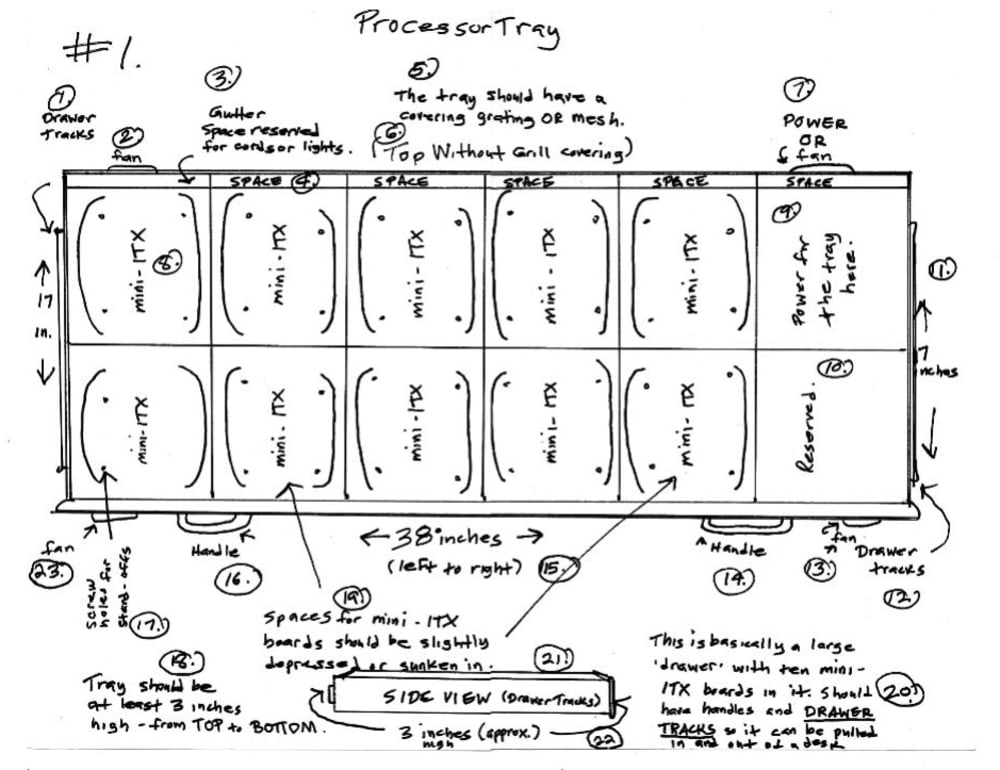 Processor Tray
#1.
1.
Drawer
Tracks
2.
fan
3.
Gutter
Space reserved
for cords or lights.
5.
The tray should have a
covering grating OR mesh.
6.
(Top Without Grill covering)
7.
POWER
OR
fan
SPACE 4.
SPACE
SPACE
SPACE
SPACE
mini-ITX
8.
mini-ITX
mini-ITX
mini-ITX
mini-ITX
9.
Power for
the tray
here.
17
in.
11.
17
inches
mini-ITX
mini-ITX
mini-ITX
mini-ITX
mini-ITX
10.
Reserved.
fan
23.
Handle
16.
38 inches
(left to right) 15.
Handle
14.
fan
13.
Drawer
tracks
12.
Screw
holes for
stand-offs
17.
19.
Spaces for mini-ITX
boards should be slightly
depressed or sunken in.
18.
Tray should be
at least 3 inches
high - from TOP to BOTTOM.
21.
SIDE VIEW (Drawer Tracks)
3 inches (approx.)
high
22
This is basically a large
'drawer' with ten mini-
ITX boards in it. Should
20.
have handles and DRAWER
TRACKS so it can be pulled
in and out of a desk